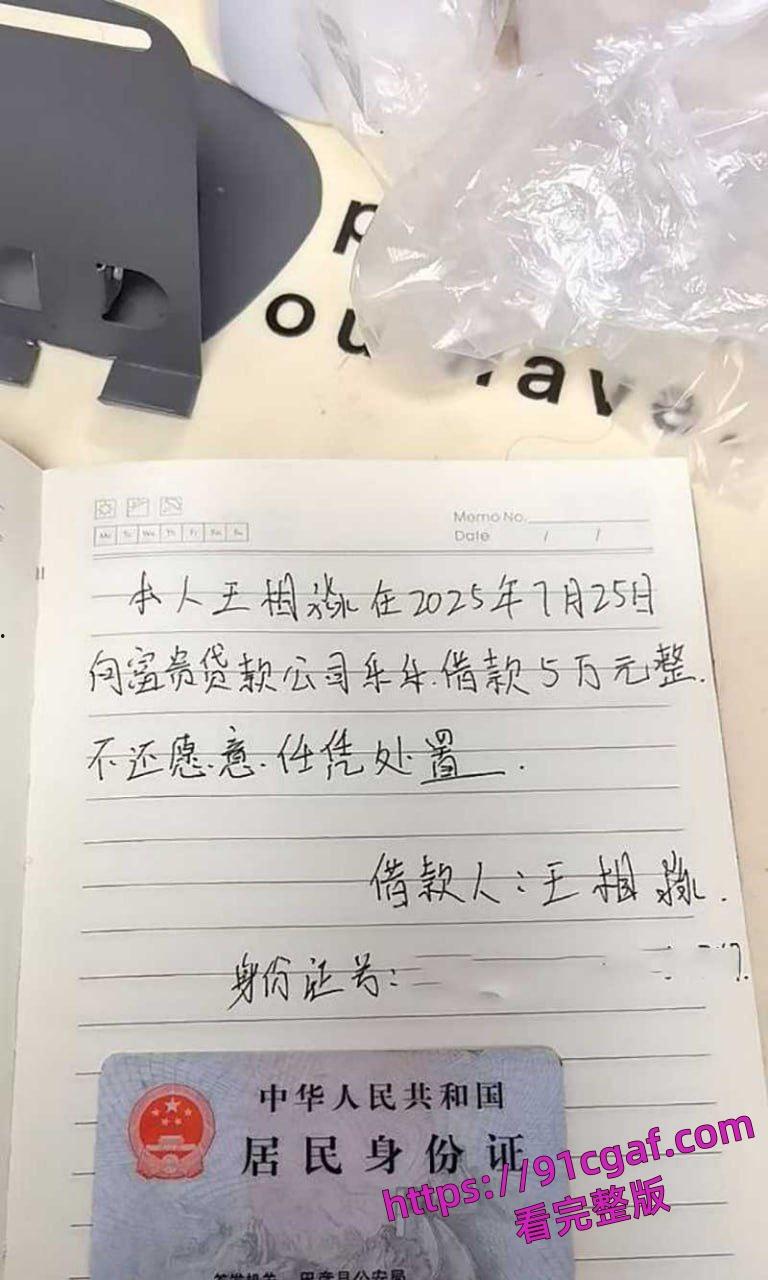 ou
Mo Tu We Th Fr Sa Su
Memo No.
Date / /
本人王相淼在2025年7月25日
向富贵贷款公司乐乐.借款5万元整.
不还愿意.任凭处置.
借款人:王相淼.
身份证号:
中华人民共和国
居民身份证
https://91cgaf.com
看完整版